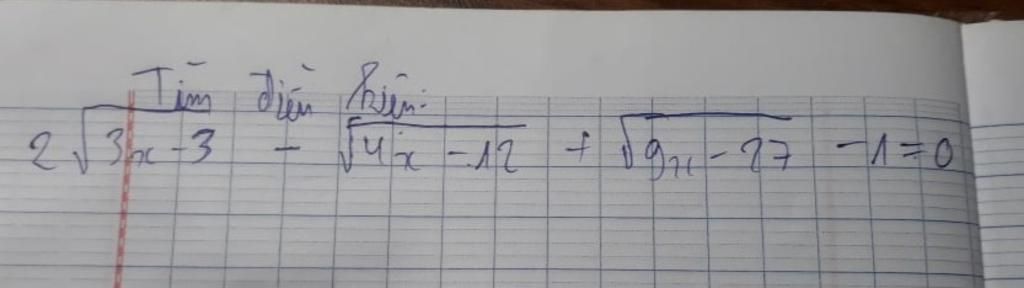 Tìm điều kiện:
2√(3x - 3) - √(4x - 12) + √(9x - 27) - 1 = 0